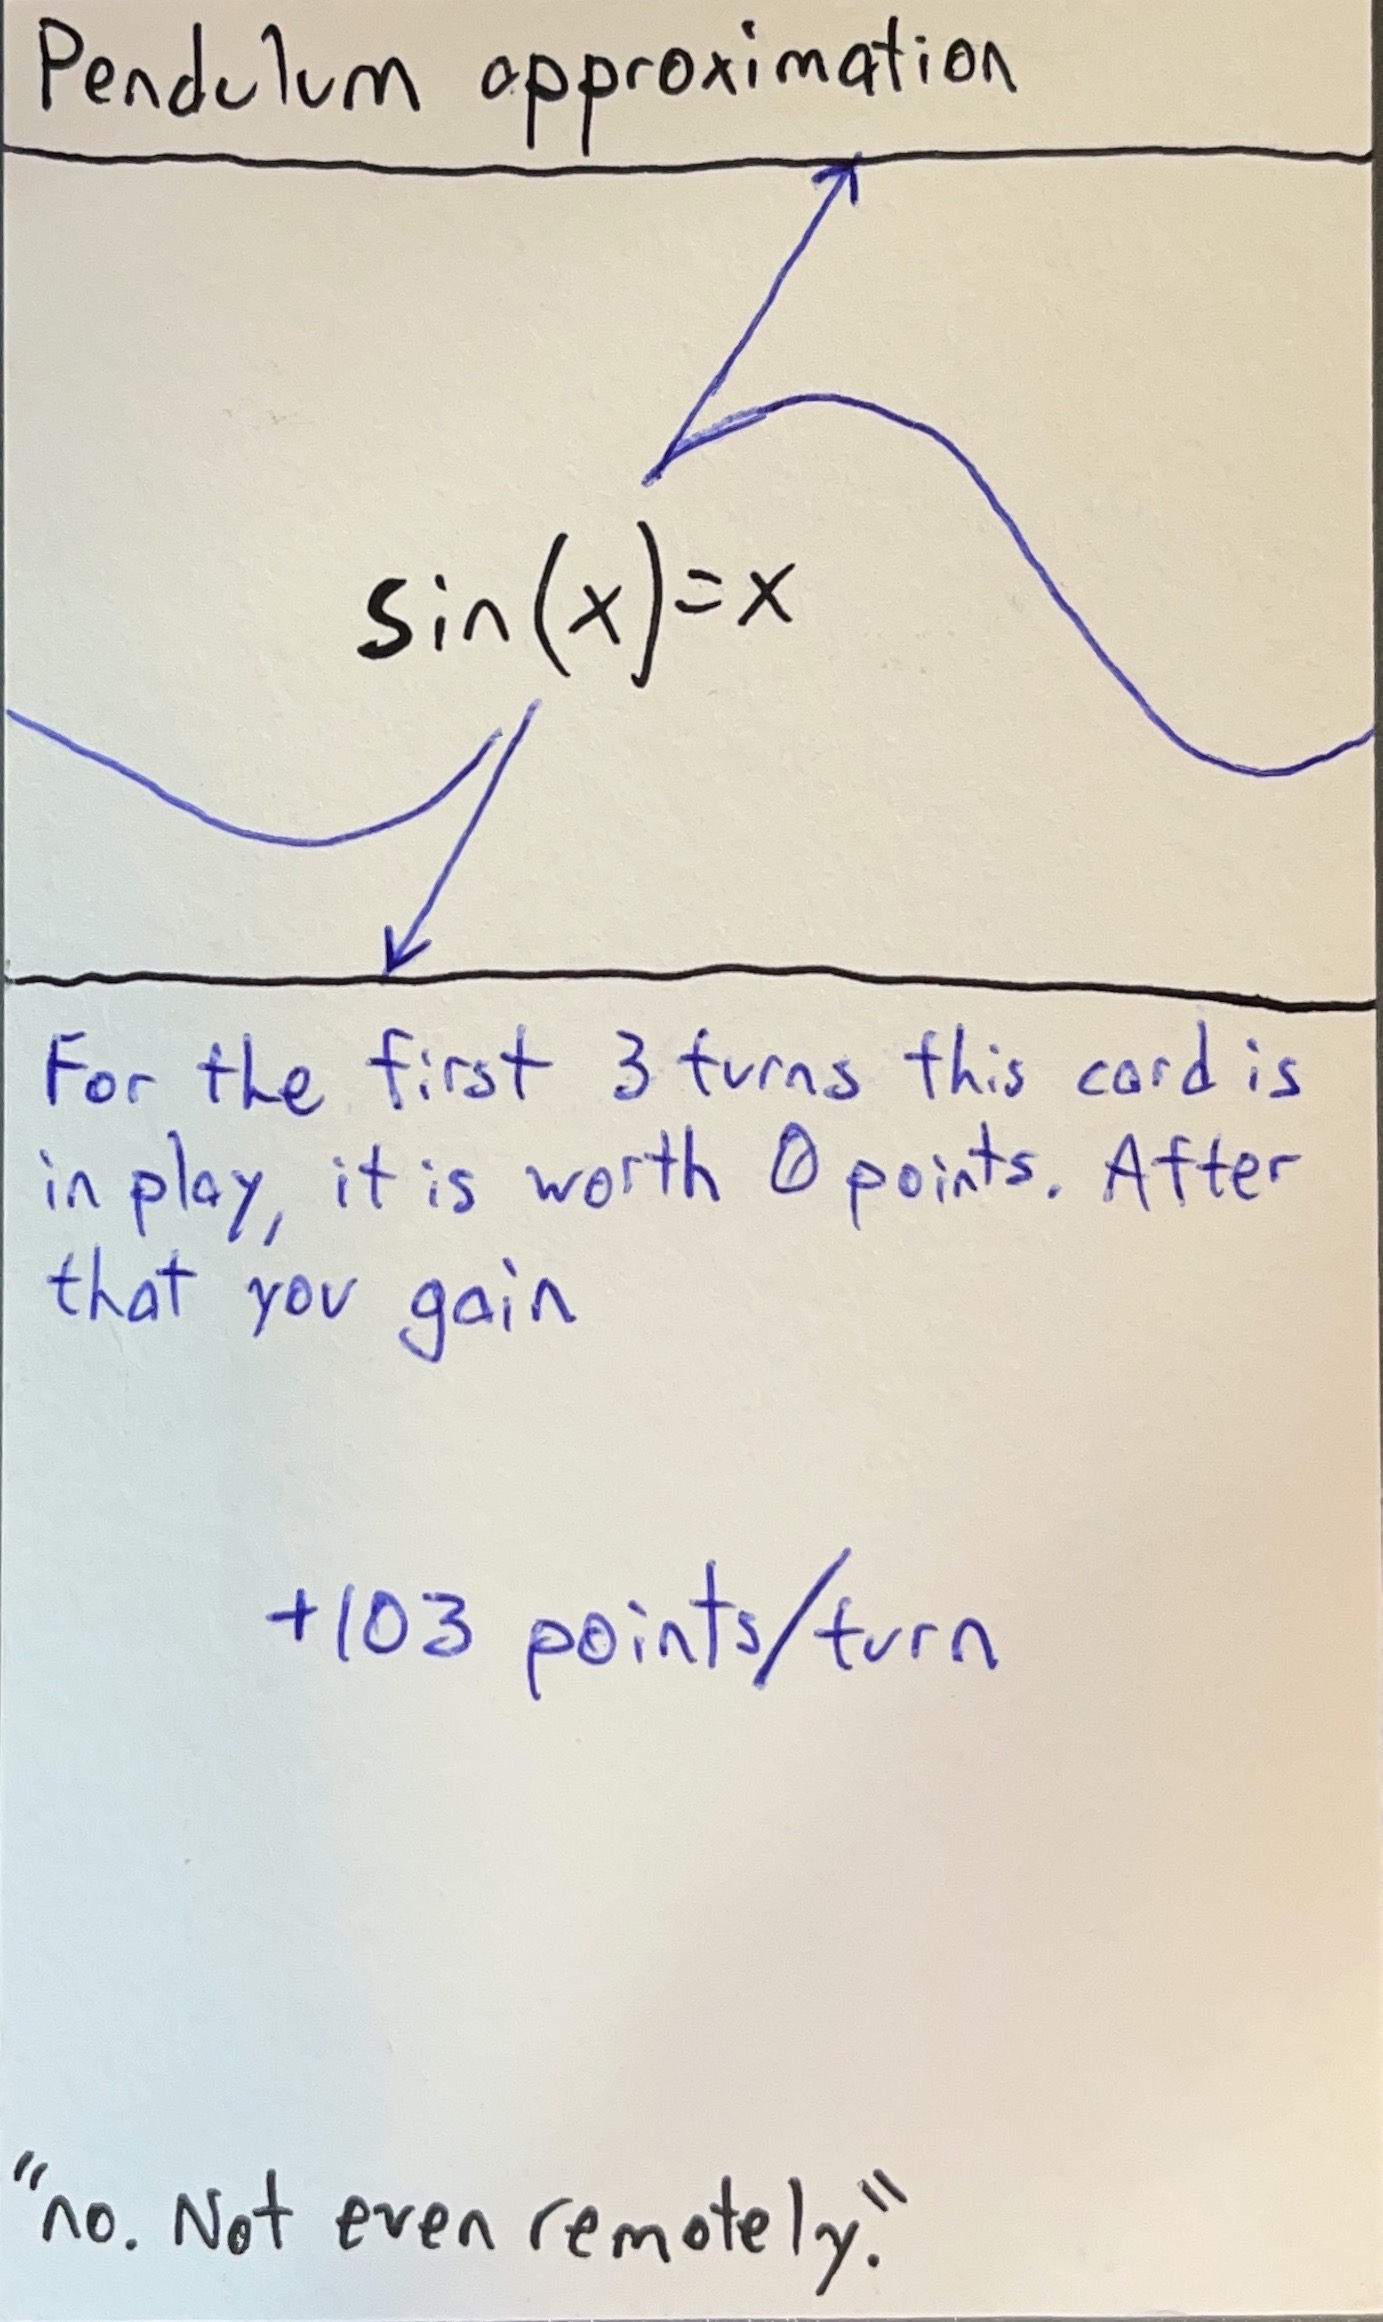 Pendulum approximation
sin(x)=x
For the first 3 turns this card is
in play, it is worth 0 points. After
that you gain
+103 points/turn
"no. Not even remotely."